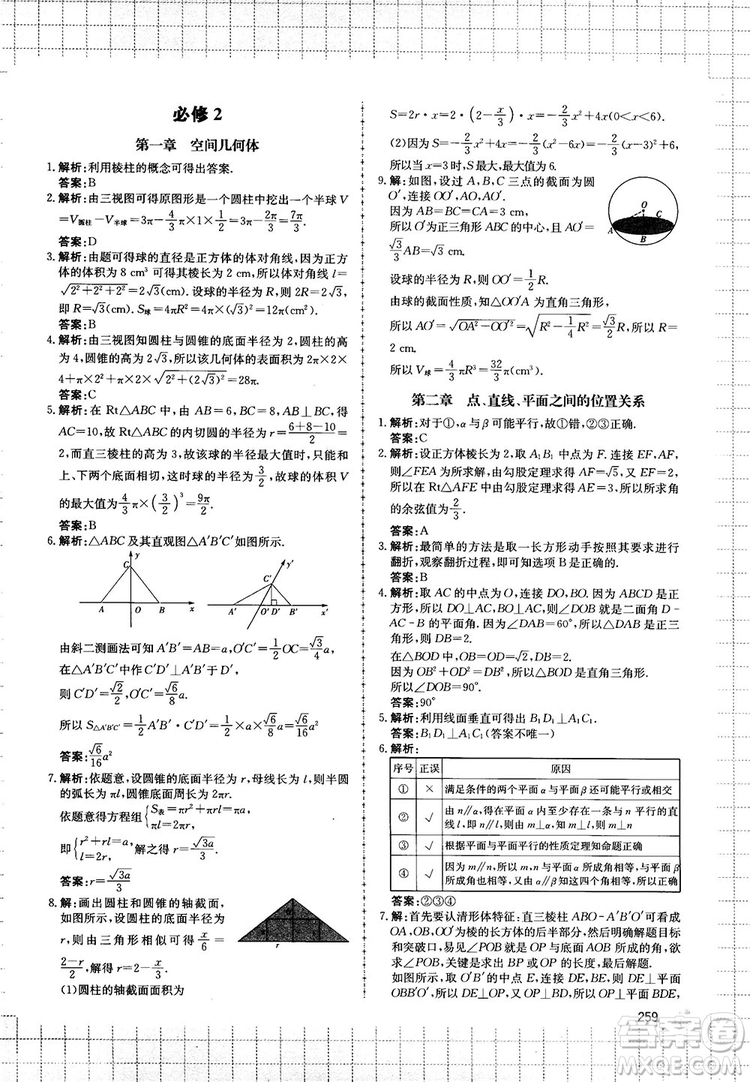 必修2
第一章 空间几何体
1. 解析:利用棱柱的概念可得出答案.
答案:B
2. 解析:由三视图可得原图形是一个圆柱中挖出一个半球V
=V圆柱-V半球=3π-4/3π×1×1/2=3π-2π/3=7π/3.
答案:D
3. 解析:由题可得球的直径是正方体的体对角线,因为正方
体的体积为8 cm³可得其棱长为2 cm,所以体对角线l=
√(2²+2²+2²)=2√3(cm). 设球的半径为R,则2R=2√3,
即R=√3(cm). S球=4πR²=4π(√3)²=12π(cm²).
答案:B
4. 解析:由三视图知圆柱与圆锥的底面半径为2,圆柱的高
为4,圆锥的高为2√3,所以该几何体的表面积为2π×2×
4+4π+1/2×4π×√(2²+(2√3)²)=28π.
答案:C
5. 解析:在Rt△ABC中,由AB=6,BC=8,AB⊥BC,得
AC=10. 故Rt△ABC的内切圆的半径r=(6+8-10)/2
=2,由直三棱柱的高为3可知,最大的球的直径为3时与
上、下两个底面相切,此时球的半径为3/2,故球的体积V
的最大值为4/3π×(3/2)³=9π/2.
答案:B
6. 解析:△ABC及其直观图△A′B′C′如图所示.
y C A O B x
y′ C′ A′ O′ D′ B′ x′
由斜二测画法可知A′B′=AB=a,O′C′=1/2OC=√3/4a,
在△A′B′C′中作C′D′⊥A′B′于D′,
则C′D′=√2/2O′C′=√6/8a.
所以S△A′B′C′=1/2A′B′·C′D′=1/2×a×√6/8a=√6/16a².
答案:√6/16a²
7. 解析:依题意,设圆锥的底面半径为r,母线长为l,半圆
的弧长为πl,依题意可得2πr=πl,
依题意得方程组{S表=πr²+πrl=πa, 2πr=πl.
即{r²+rl=a, l=2r, 解之得r=√(3a)/3.
答案:r=√(3a)/3
8. 解:画出圆柱和圆锥的轴截面,
如图所示,设圆柱的底面半径为
r,则由三角形相似可得x/6=
(2-r)/2,解得r=2-x/3.
(1)圆柱的轴截面面积为
S=2r·x=2·(2-x/3)·x=-2/3x²+4x(0<x<6).
(2)因为S=-2/3x²+4x=-2/3(x²-6x)=-2/3(x-3)²+6,
所以当x=3时,S最大,最大值为6.
9. 解:如图,设过A,B,C三点的截面为圆
O′,连接OO′,AO,AO′.
因为AB=BC=CA=3 cm,
所以O′为正三角形ABC的中心,且AO′=
√3/3AB=√3(cm).
O O′ A B C
设球的半径为R,则OO′=1/2R.
由球的截面性质,知△OO′A为直角三角形,
所以AO′=√(OA²-OO′²)=√(R²-1/4R²)=√3/2R,所以R=
2 cm.
所以V球=4/3πR³=32π/3(cm³).
第二章 点、直线、平面之间的位置关系
1. 解析:对于①,α与β可能平行,故①错,②③正确.
答案:C
2. 解析:设正方体棱长为2,取A₁B₁中点为F. 连接EF,AF,
则∠FEA为所求解,由勾股定理可求得AF=√5,EF=2,
所以在Rt△AFE中由勾股定理求得AE=3,所以所求角
的余弦值为2/3.
答案:A
3. 解析:最简单的方法是取一长方形动手按照其要求进行
翻折,观察翻折过程,可知选B.
答案:B
4. 解析:取AC的中点为O,连接DO,BO. 因为ABCD是正
方形,所以DO⊥AC,BO⊥AC,所以∠DOB就是二面角D-
AC-B的平面角. 因为∠DAB=60°,所以DB=2.
在△BOD中,OB=OD=√2,DB=2.
因为OB²+OD²=DB²,所以△BOD是直角三角形.
所以∠BOD=90°.
答案:90°
5. 解析:利用线面垂直可得出B₁D₁⊥A₁C₁.
答案:B₁D₁⊥A₁C₁(答案不唯一)
6. 解析:
序号 正误 原因
① × 满足条件的两个平面α与平面β还可能平行或相交
② √ 由n∥α,可得在平面α内至少存在一条与n平行的直
线l,即n∥l,由m⊥α,知m⊥l,所以m⊥n
③ √ 根据平面与平面平行的性质定理知命题正确
④ √ 因为m∥n,所以m,n与平面α所成角相等,与平面β
所成角也相等,又α∥β,所以所成角都相等
答案:②③④
7. 解:首先要认清形体特征:直三棱柱ABO-A′B′O′可看成
OA,OB,OO′互相垂直的长方体的后半部分,然后明确解题目
标和突破口,易见∠POB就是底面与底面AOB所成角. 要求
∠POB,关键是求出BP与OB的长,突破口是OP⊥BD.
如图,取O′B′的中点E,连接DE,BE,则DE⊥平面
OBB′O′,所以DE⊥OP,又OP⊥BD,所以OP⊥平面BDE,
259
答案圈
MXQE.COM